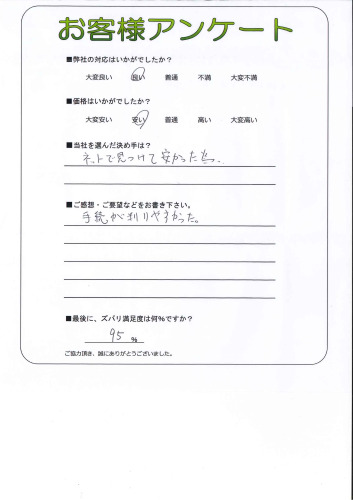 お客様アンケート
■弊社の対応はいかがでしたか?
大変良い 良い 普通 不満 大変不満
■価格はいかがでしたか?
大変安い 安い 普通 高い 大変高い
■当社を選んだ決め手は?
ネットで見つけて安かった
■ご感想・ご要望などをお書き下さい。
手続がわかりやすかった。
■最後に、ズバリ満足度は何%ですか?
95 %
ご協力頂き、誠にありがとうございました。